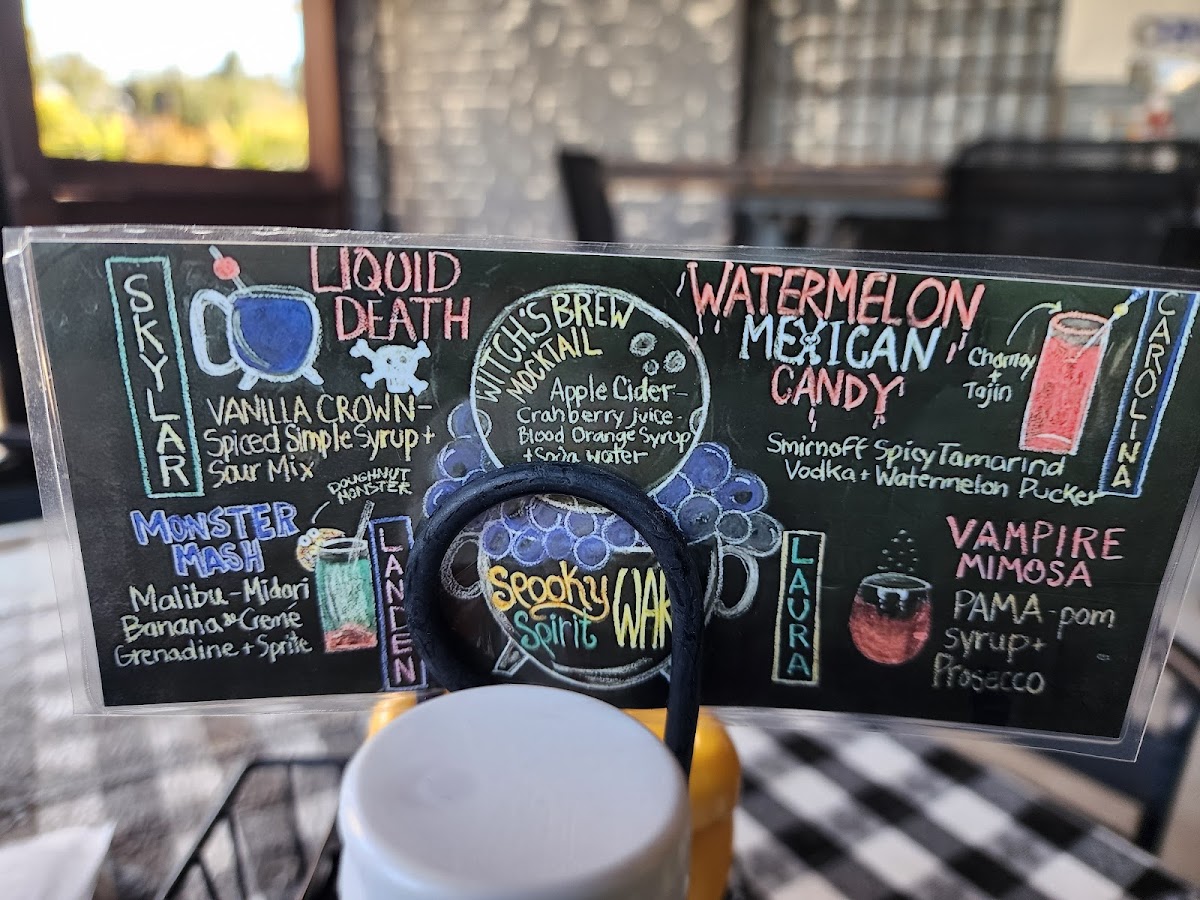 SKYLAR
LIQUID
DEATH
VANILLA CROWN-
Spiced Simple Syrup +
Sour Mix
WITCH'S BREW
MOCKTAIL
Apple Cider-
Cranberry juice-
Blood Orange Syrup
+ Soda water
WATERMELON
MEXICAN
CANDY
Chamoy
+
Tajin
CAROLINA
Smirnoff Spicy Tamarind
Vodka + Watermelon Pucker
DOUGHNUT
MONSTER
MONSTER
MASH
Malibu-Midori
Banana Creme
Grenadine + Sprite
LANDEN
Spooky
Spirit
LAURA
VAMPIRE
MIMOSA
PAMA-pom
syrup +
Prosecco